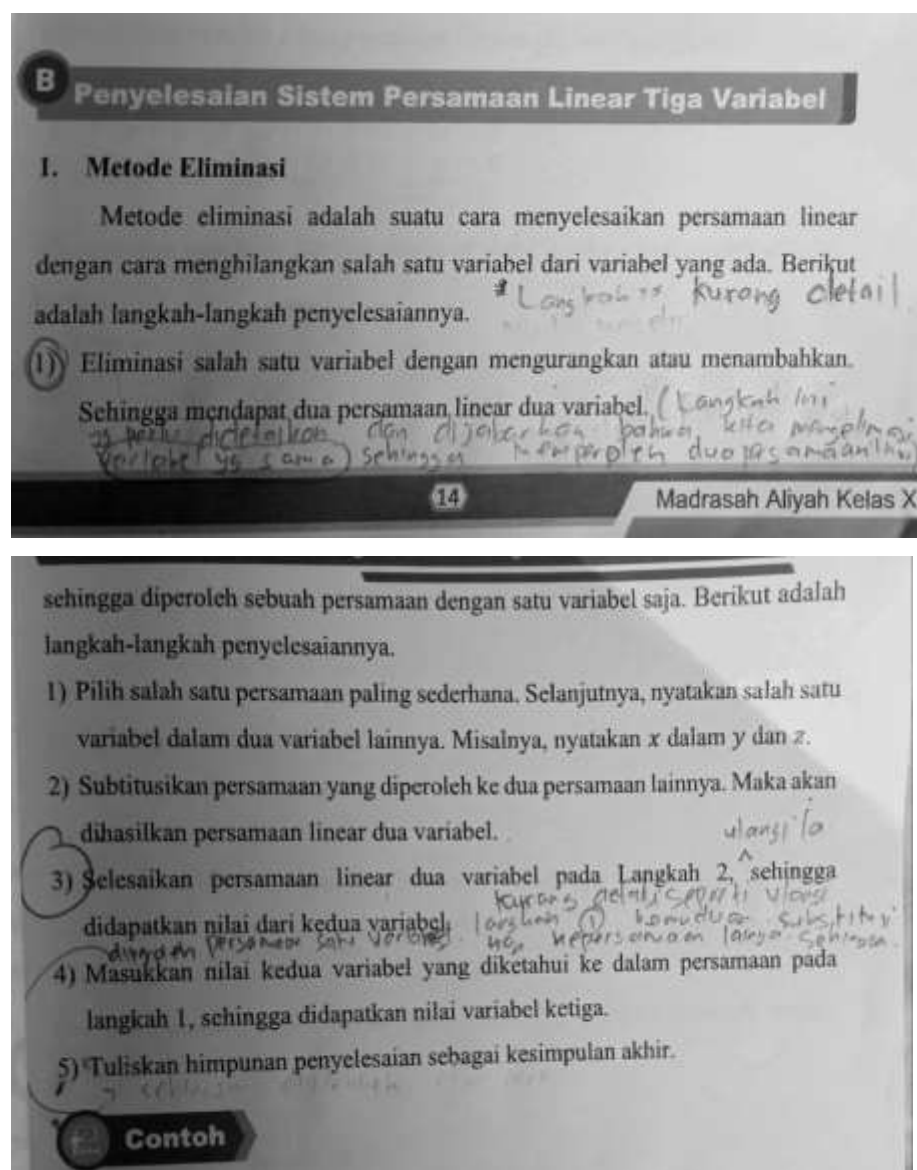 B
Penyelesaian Sistem Persamaan Linear Tiga Variabel
1. Metode Eliminasi
Metode eliminasi adalah suatu cara menyelesaikan persamaan linear
dengan cara menghilangkan salah satu variabel dari variabel yang ada. Berikut
kurang detail
adalah langkah-langkah penyelesaiannya.
1) Eliminasi salah satu variabel dengan mengurangkan atau menambahkan.
Sehingga mendapat dua persamaan linear dua variabel. (Langkah ini
perlu didetailkan dan dijabarkan bahwa kita mengeliminasi
variabel yg sama) sehingga memperoleh dua
14
Madrasah Aliyah Kelas X
sehingga diperoleh sebuah persamaan dengan satu variabel saja. Berikut adalah
langkah-langkah penyelesaiannya.
1) Pilih salah satu persamaan paling sederhana. Selanjutnya, nyatakan salah satu
variabel dalam dua variabel lainnya. Misalnya, nyatakan x dalam y dan z.
2) Subtitusikan persamaan yang diperoleh ke dua persamaan lainnya. Maka akan
dihasilkan persamaan linear dua variabel.
ulangi
3) Selesaikan persamaan linear dua variabel pada Langkah 2, sehingga
kurang detail seperti ulangi
didapatkan nilai dari kedua variabel. langkah 1 kemudian substitusi
persamaan satu variabel kepersamaan lainya sehingga
4) Masukkan nilai kedua variabel yang diketahui ke dalam persamaan pada
langkah 1, sehingga didapatkan nilai variabel ketiga.
5) Tuliskan himpunan penyelesaian sebagai kesimpulan akhir.
Contoh